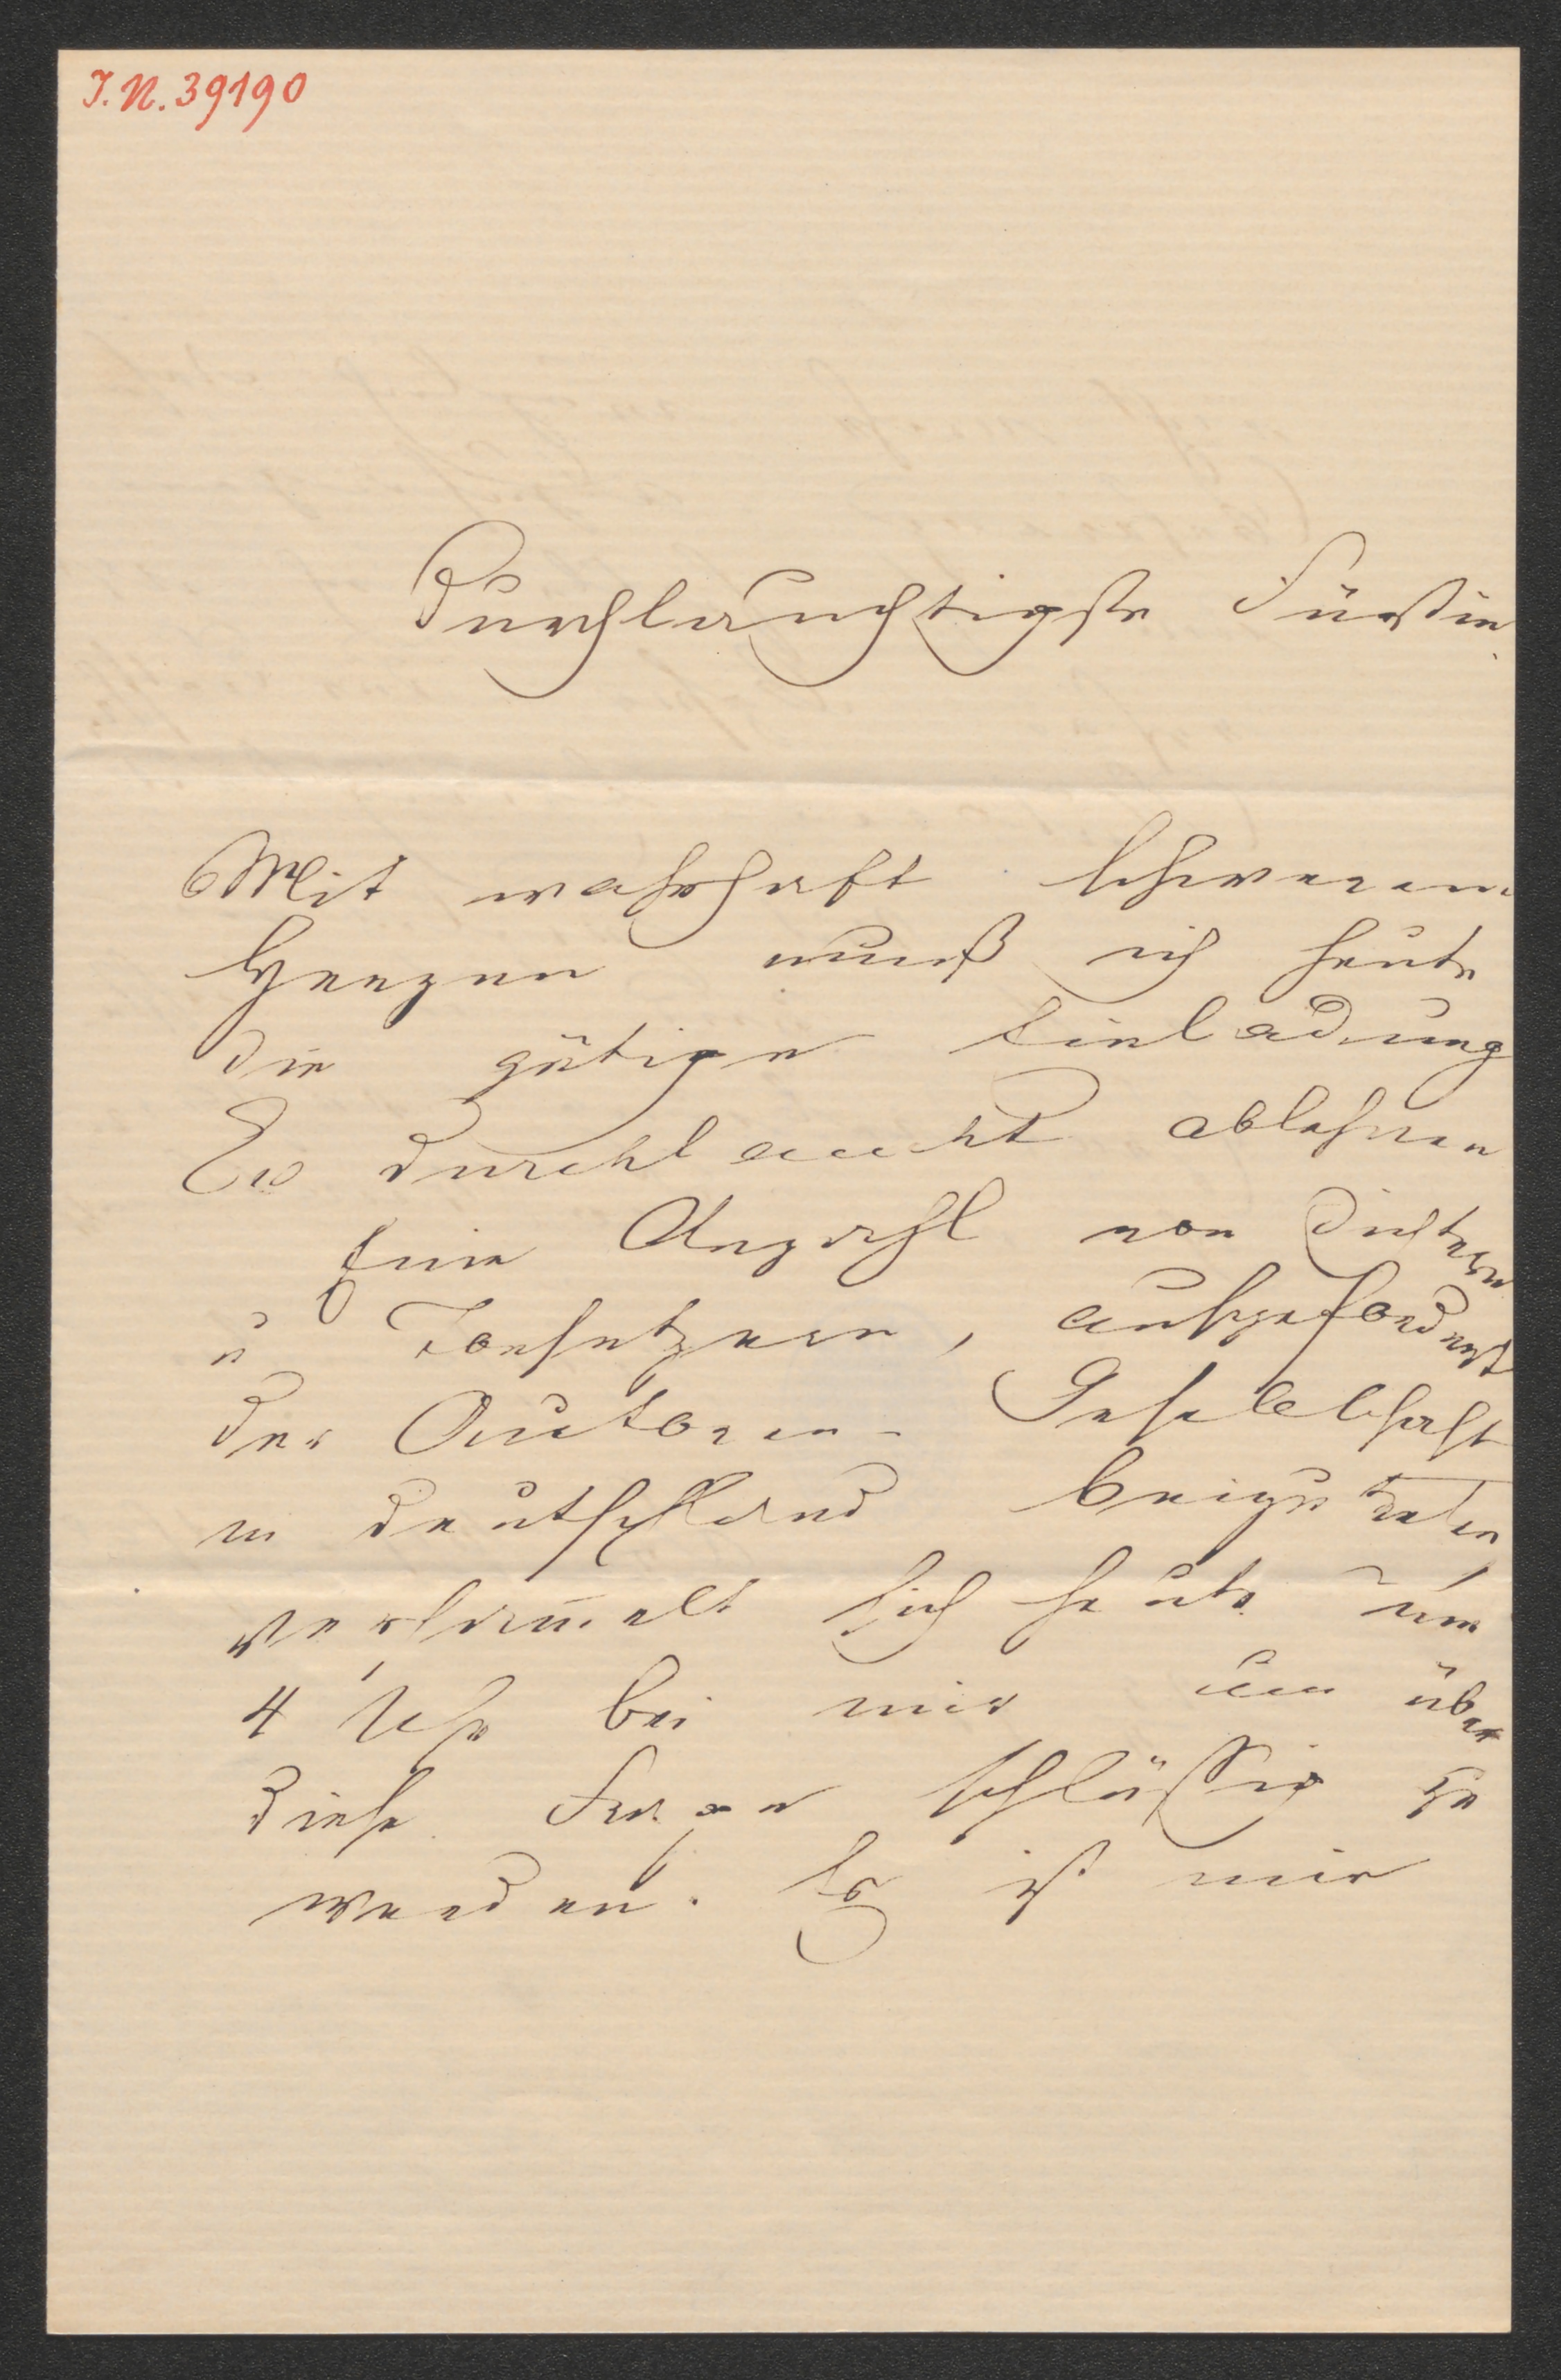 I.N. 39190
Durchlauchtigste Fürstin
Mit wahrhaft schwerem
Herzen muß ich heute
die gütige Einladung
Ew Durchlaucht ablehnen
Eine Anzahl von Dichtern
u Tonsetzern, aufgefordert
der Autoren-Gesellschaft
in Deutschland beizutreten
versam̄elt sich heute um
4 Uhr bei mir um über
diese Frage schlüssig zu
werden. Es ist mir